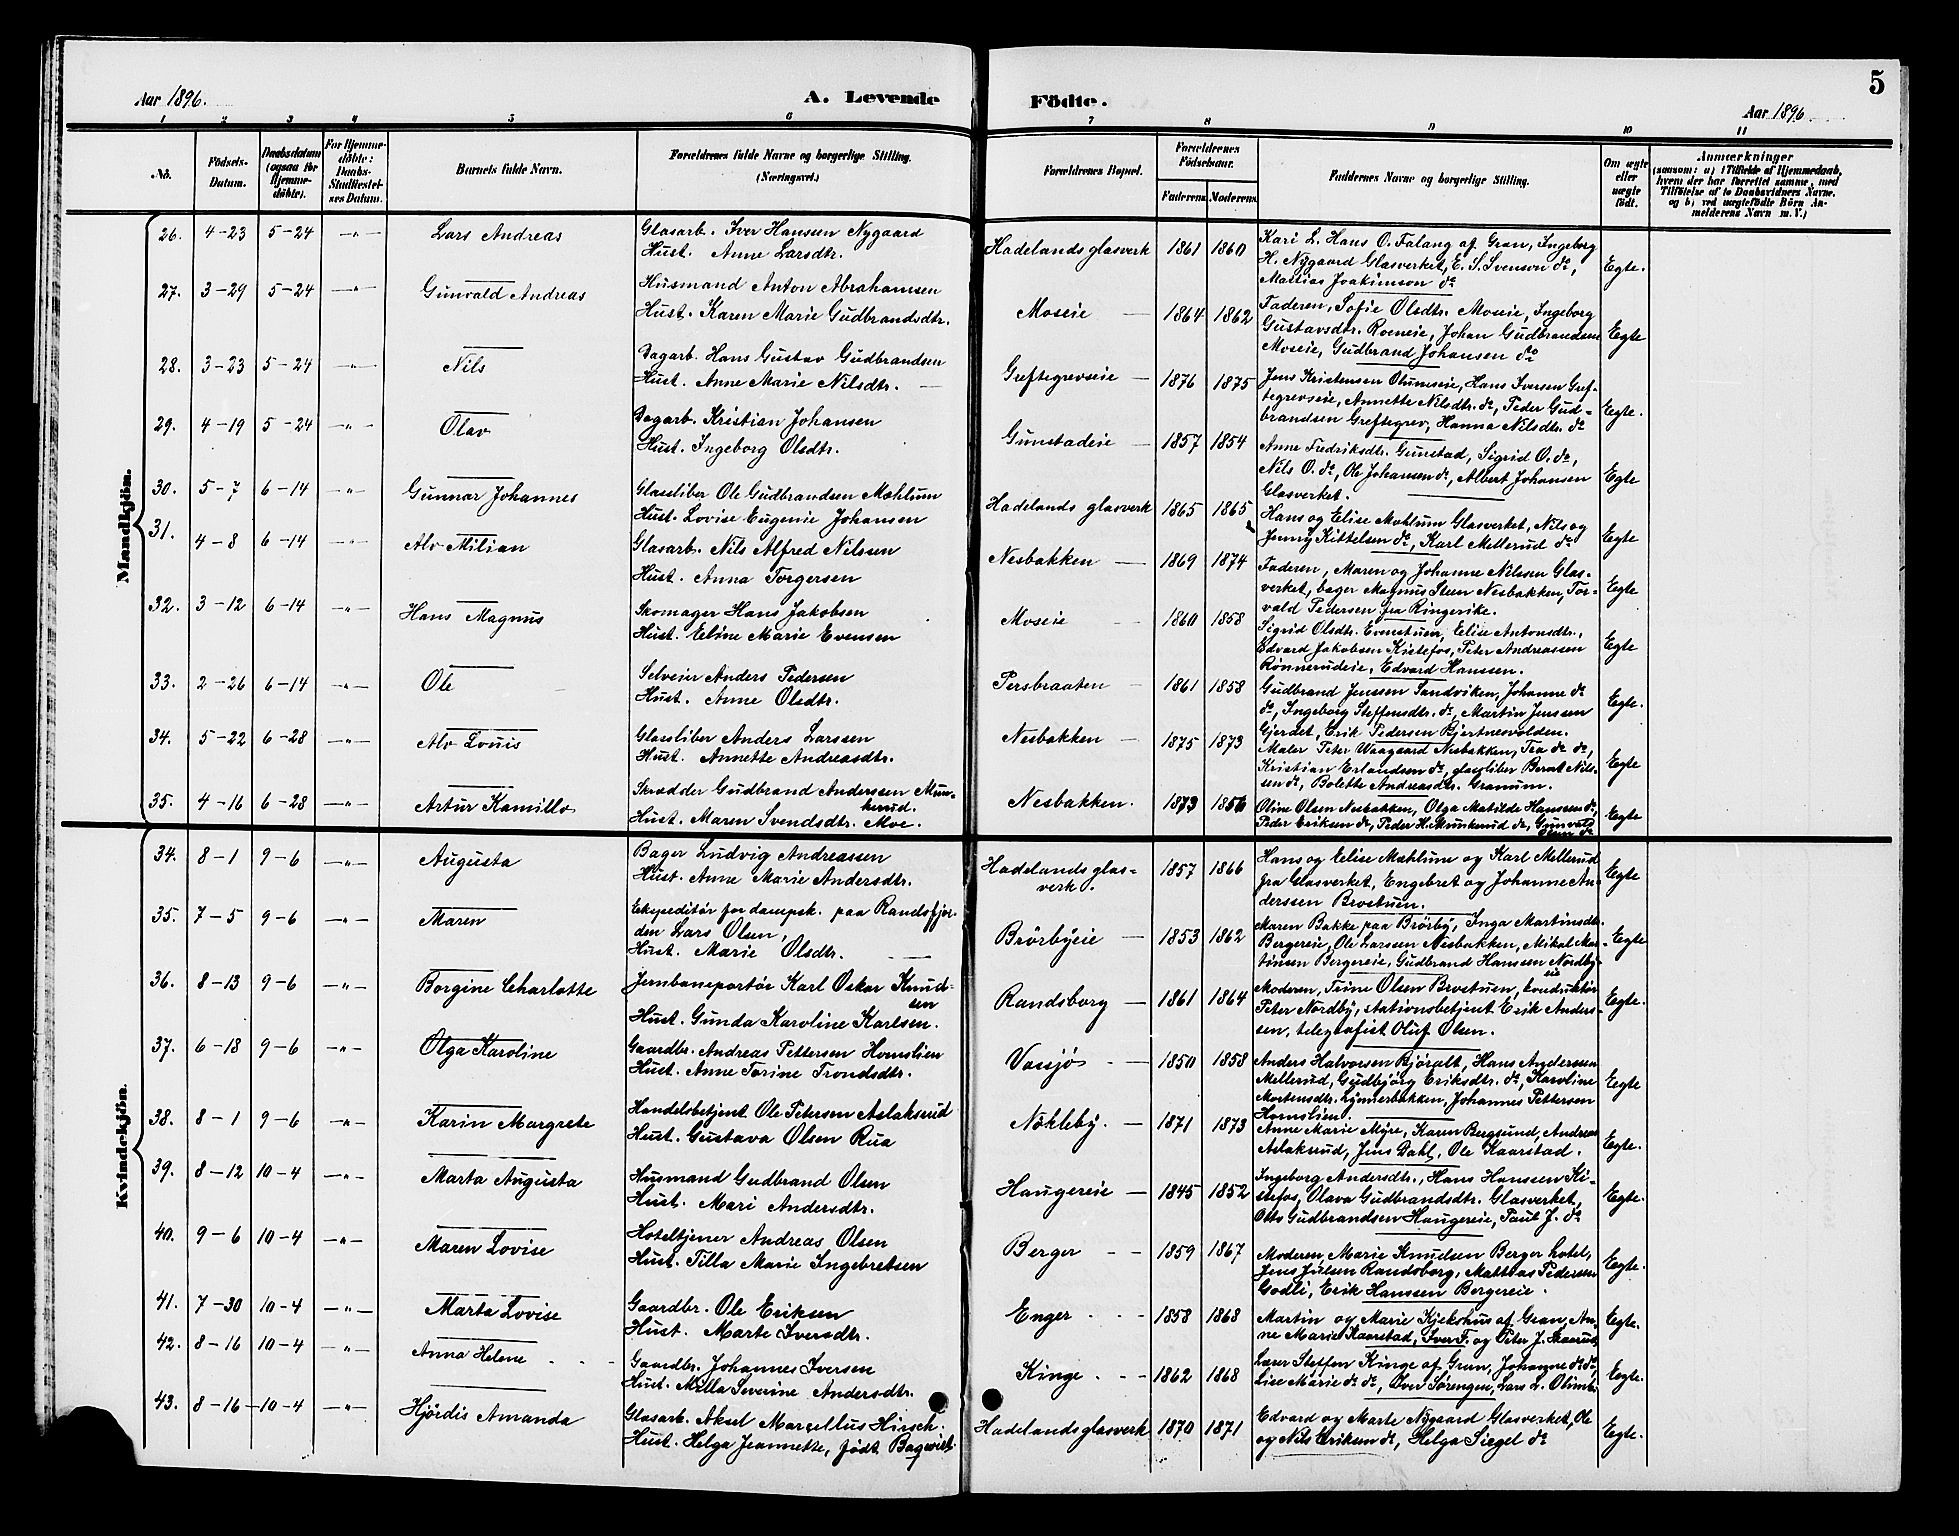 Aar 1896.
A. Levende
Födte.
Aar 1896
5
1 2 3 4 5 6 7 8 9 10 11
No.
Födsels-Datum.
Daabsdatum (ogsaa for Hjemmedöbte).
For Hjemmedöbte: Daabs-Stadfæstelses Datum.
Barnets fulde Navn.
Forældrenes fulde Navne og borgerlige Stilling. (Næringsvei.)
Forældrenes Bopæl.
Forældrenes Födselsaar.
Faderens. Moderens.
Faddernes Navne og borgerlige Stilling.
Om ægte eller uægte födt.
Anmærkninger
(saasom: a) i Tilfælde af Hjemmedaab, hvem der har forrettet samme, med Tilföielse af to Daabsvidners Navne, og b) ved uægtefödte Börn Anmelderens Navn m. V.)
Mandkjön.
26. 4-23 5-24 -"- Lars Andreas
Glasarb. Iver Hansen Nygaard
Hust. Anne Larsdtr.
Hadelands glasverk 1861 1860
Kari L. Hans O. Falang af Gran, Ingeborg
H. Nygaard Glasverket, E. S. Svenson do,
Mattias Joakimson do
Egte.
27. 3-29 5-24 -"- Gunvald Andreas
Husmand Anton Abrahamsen
Hust. Karen Marie Gudbrandsdtr.
Moseie 1864 1862
Faderen, Sofie Olsdtr. Moseie, Ingeborg
Gustavsdtr. Roeneie, Johan Gudbrandsen
Moseie, Gudbrand Johansen do
Egte
28. 3-23 5-24 -"- Nils
Dagarb. Hans Gustav Gudbrandsen
Hust. Anne Marie Nilsdtr.
Greftegrevseie 1876 1875
Jens Kristensen Olumseie, Hans Iversen Gref-
tegrevseie, Annette Nilsdtr. do, Peder Gud-
brandsen Greftegrev, Hanna Nilsdtr. do
Egte.
29. 4-19 5-24 -"- Olav
Dagarb. Kristian Johansen
Hust. Ingeborg Olsdtr.
Gunstadeie 1857 1854
Anne Fredriksdtr. Gunstad, Sigrid O. do,
Nils O. do, Ole Johansen do, Albert Johansen
Glasverket.
Egte
30. 5-7 6-14 -"- Gunnar Johannes
Glassliber Ole Gudbrandsen Mæhlum
Hust. Lovise Eugenie Johansen
Hadelands glasverk 1865 1865
Hans og Elise Mæhlum Glasverket, Nils og
Jenny Kittelsen do, Karl Mellerud do
Egte
31. 4-8 6-14 -"- Alv Milian
Glasarb. Nils Alfred Nilsen
Hust. Anna Torgersen
Nesbakken 1869 1874
Faderen, Maren og Johanne Nilsen Glas-
verket, bager Magnus Steen Nesbakken, Tor-
vald Pedersen fra Ringerike.
Egte
32. 3-12 6-14 -"- Hans Magnus
Skomager Hans Jakobsen
Hust. Eline Marie Evensen
Moseie 1860 1858
Sigrid Olsdtr. Evenstuen, Elise Antonsdtr.,
Edvard Jakobsen Kistefos, Peter Andreassen
Rönnerudeie, Edvard Hanssen.
Egte
33. 2-26 6-14 -"- Ole
Selveier Anders Pedersen
Hust. Anne Olsdtr.
Persbraaten 1861 1858
Gudbrand Jenssen Sandviken, Johanne do
do, Ingeborg Steffensdtr. do, Martin Jenssen
Gjerdet, Erik Pedersen Bjertnesvolden.
Egte.
34. 5-22 6-28 -"- Alv Louis
Glassliber Anders Larssen
Hust. Annette Andreasdtr.
Nesbakken 1875 1873
Maler Peter Waagaard Nesbakken, Tea do do,
Kristian Erlandsen do, glassliber Bernt Nils-
sen do, Bolette Andreasdtr. Granum.
Egte
35. 4-16 6-28 -"- Artur Kamillo
Skrædder Gudbrand Anderssen Mun-
kerud.
Hust. Maren Svendsdtr. Moe.
Nesbakken. 1873
Oline Olsen Nesbakken, Olga Matilde Hanssen do,
Peder Eriksen do, Peder H. Munkerud do, Gunvald
Olsen do
Egte
Kvindekjön.
34. 8-1 9-6 -"- Augusta
Bager Ludvig Andreassen
Hust. Anne Marie Andersdtr.
Hadelands glas-
verk. 1857 1866
Hans og Elise Mæhlum og Karl Mellerud
fra Glasverket, Engebret og Johanne An-
derssen Brostuen.
Egte
35. 7-5 9-6 -"- Maren
Ekspeditör for dampsk. paa Randsfjor-
den Lars Olsen,
Hust. Marie Olsdtr.
Brörbyeie 1853 1862
Maren Bakke paa Brörby, Inga Martinsdtr.
Bergereie, Ole Larssen Nesbakken, Mikal Mar-
tinsen Bergereie, Gudbrand Hanssen Nordby-
eie
Egte
36. 8-13 9-6 -"- Borgine Charlotte
Jernbaneportör Karl Oskar Knud-
sen
Hust. Gunda Karoline Karlsen.
Randsborg 1861 1864
Moderen, Trine Olsen Brostuen, konduktör
Peter Nordby, stationsbetjent Erik Anders-
sen, telegrafist Oluf Olsen.
Egte.
37. 6-18 9-6 -"- Olga Karoline
Gaardbr. Andreas Pettersen Hornslien
Hust. Anne Torine Trondsdtr.
Vassjö 1850 1858
Anders Halvorsen Björalt, Hans Anderssen
Mellerud, Gudbjörg Eriksdtr. do, Karoline
Mortensdtr. Lynnerbakken, Johannes Pettersen
Hornslien.
Egte
38. 8-1 9-6 -"- Karin Margrete
Handelsbetjent Ole Petersen Aslaksrud
Hust. Gustava Olsen Rua
Nökleby. 1871 1873
Anne Marie Myre, Karen Bergsund, Andreas
Aslaksrud, Jens Dahl, Ole Kaarstad.
Egte.
39. 8-12 10-4 -"- Marta Augusta
Husmand Gudbrand Olsen
Hust. Mari Andersdtr.
Haugereie 1845 1852
Ingeborg Andersdtr., Hans Hanssen Ki-
stefos, Olava Gudbrandsdtr. Glasverket,
Otto Gudbrandsen Haugereie, Paul J. do
Egte.
40. 9-6 10-4 -"- Maren Lovise
Hoteltjener Andreas Olsen
Hust. Tilla Marie Ingebretsen
Berger 1859 1867
Moderen, Marie Knudsen Berger hotel,
Jens Julsen Randsborg, Mathias Pedersen
Godli, Erik Hanssen Bergereie.
Egte.
41. 7-30 10-4 -"- Marta Lovise
Gaardbr. Ole Eriksen
Hust. Marte Iversdtr.
Enger 1858 1868
Martin og Marie Kjekshus af Gran, An-
ne Marie Kaarstad, Iver F. og Peter J.
Egte.
42. 8-16 10-4 -"- Anna Helene
Gaardbr. Johannes Iversen
Hust. Milla Severine Andersdtr.
Kinge 1862 1868
Lærer Steffen Kinge af Gran, Johanne do do,
Lise Marie do do, Iver Sörengen, Lars L.
Egte.
43. 8-16 10-4 -"- Hjördis Amanda
Glasarb. Aksel Marcellus Hirsch.
Hust. Helga Jeannette, födt Bagqvist.
Hadelands glasverk 1870 1871
Edvard og Marte Nygaard Glasverket, Ole
og Nils Eriksen do, Helga Siegel do
Egte.